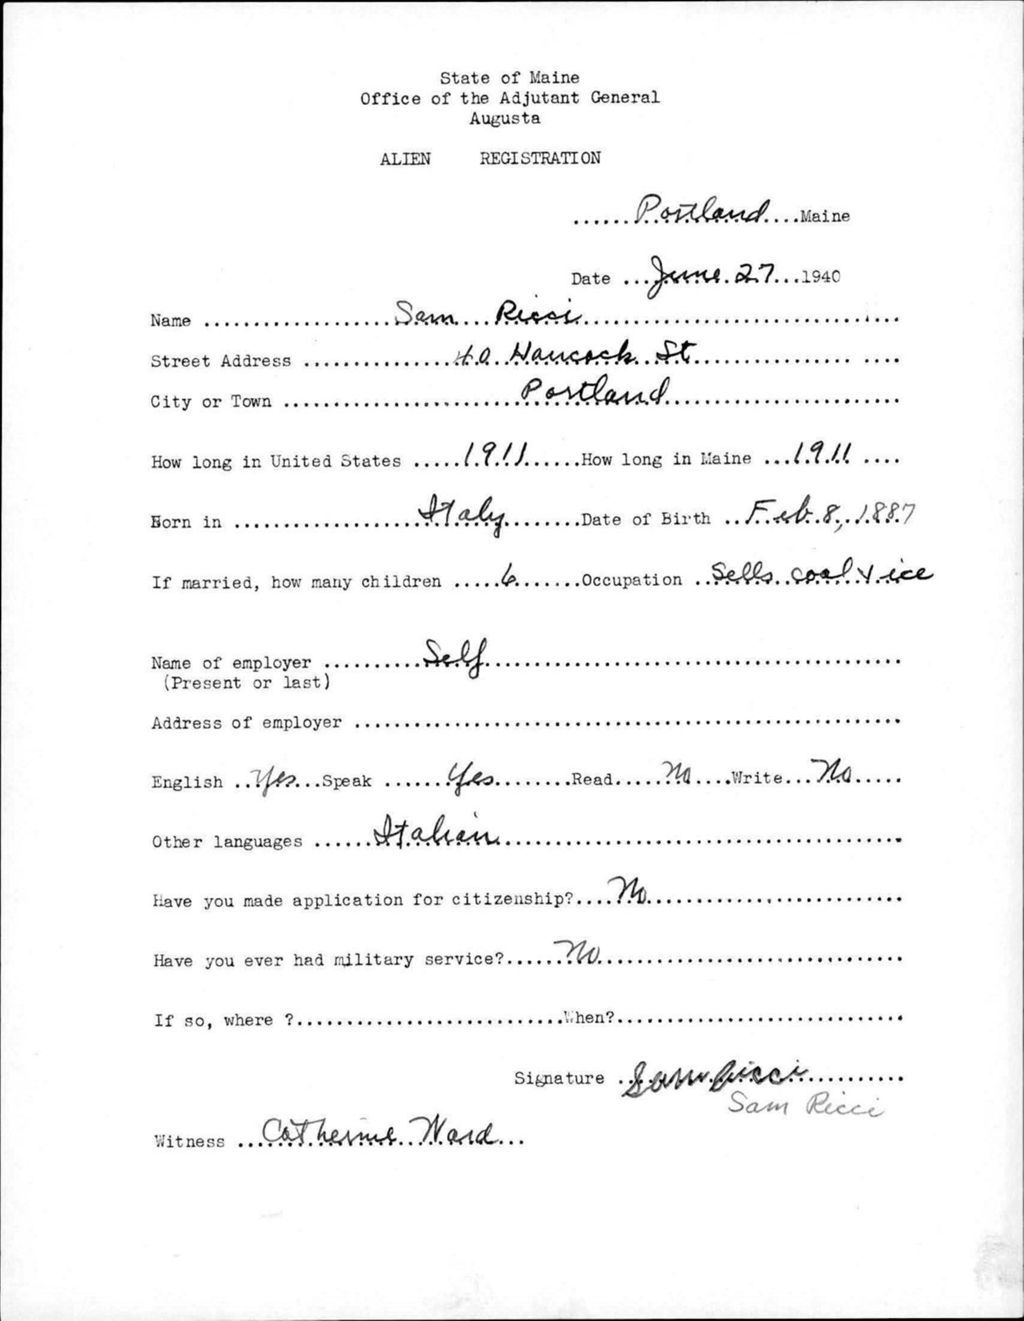 State of Maine
Office of the Adjutant General
Augusta
ALIEN REGISTRATION
......Portland....Maine
Date ...June.27...1940
Name ...................Sam....Ricci................................
Street Address ...............40.Hancock..St................... ....
City or Town ........................Portland........................
How long in United States .....1911......How long in Maine ...1911 ....
Born in ...................Italy........Date of Birth ..Feb.8,.1887
If married, how many children .....6.......Occupation ..Sells..coal & ice
Name of employer ..........Self..........................................
(Present or last)
Address of employer .......................................................
English ..Yes...Speak ......Yes........Read.....No....Write...No.....
Other languages ......Italian.........................................
Have you made application for citizenship?....No..........................
Have you ever had military service?......No...............................
If so, where ?..........................When?.............................
Signature ..Sam Ricci..........
Sam Ricci
Witness ...Catherine..Ward...